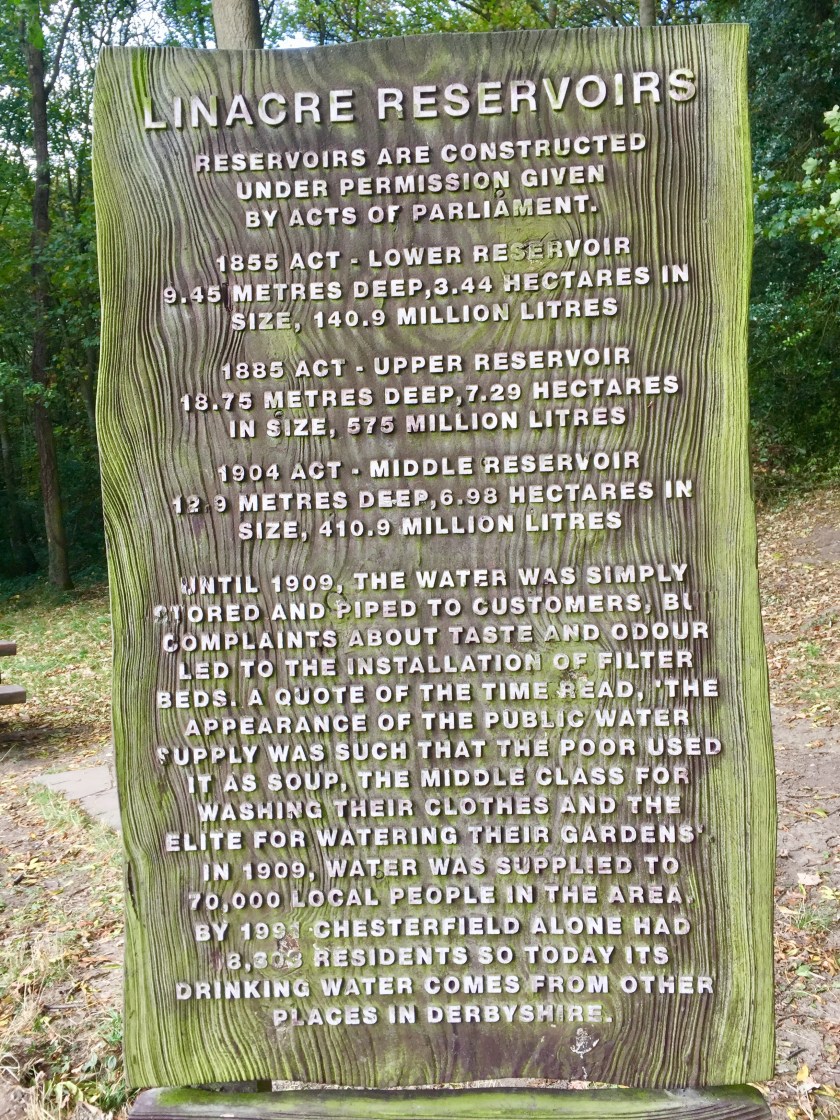 LINACRE RESERVOIRS
RESERVOIRS ARE CONSTRUCTED
UNDER PERMISSION GIVEN
BY ACTS OF PARLIAMENT.
1855 ACT - LOWER RESERVOIR
9.45 METRES DEEP,3.44 HECTARES IN
SIZE, 140.9 MILLION LITRES
1885 ACT - UPPER RESERVOIR
18.75 METRES DEEP,7.29 HECTARES
IN SIZE, 575 MILLION LITRES
1904 ACT - MIDDLE RESERVOIR
12.9 METRES DEEP,6.98 HECTARES IN
SIZE, 410.9 MILLION LITRES
UNTIL 1909, THE WATER WAS SIMPLY
STORED AND PIPED TO CUSTOMERS,
COMPLAINTS ABOUT TASTE AND ODOUR
LED TO THE INSTALLATION OF FILTER
BEDS. A QUOTE OF THE TIME READ, 'THE
APPEARANCE OF THE PUBLIC WATER
SUPPLY WAS SUCH THAT THE POOR USED
IT AS SOUP, THE MIDDLE CLASS FOR
WASHING THEIR CLOTHES AND THE
ELITE FOR WATERING THEIR GARDENS'.
IN 1909, WATER WAS SUPPLIED TO
70,000 LOCAL PEOPLE IN THE AREA.
BY 1991 CHESTERFIELD ALONE HAD
RESIDENTS SO TODAY ITS
DRINKING WATER COMES FROM OTHER
PLACES IN DERBYSHIRE.